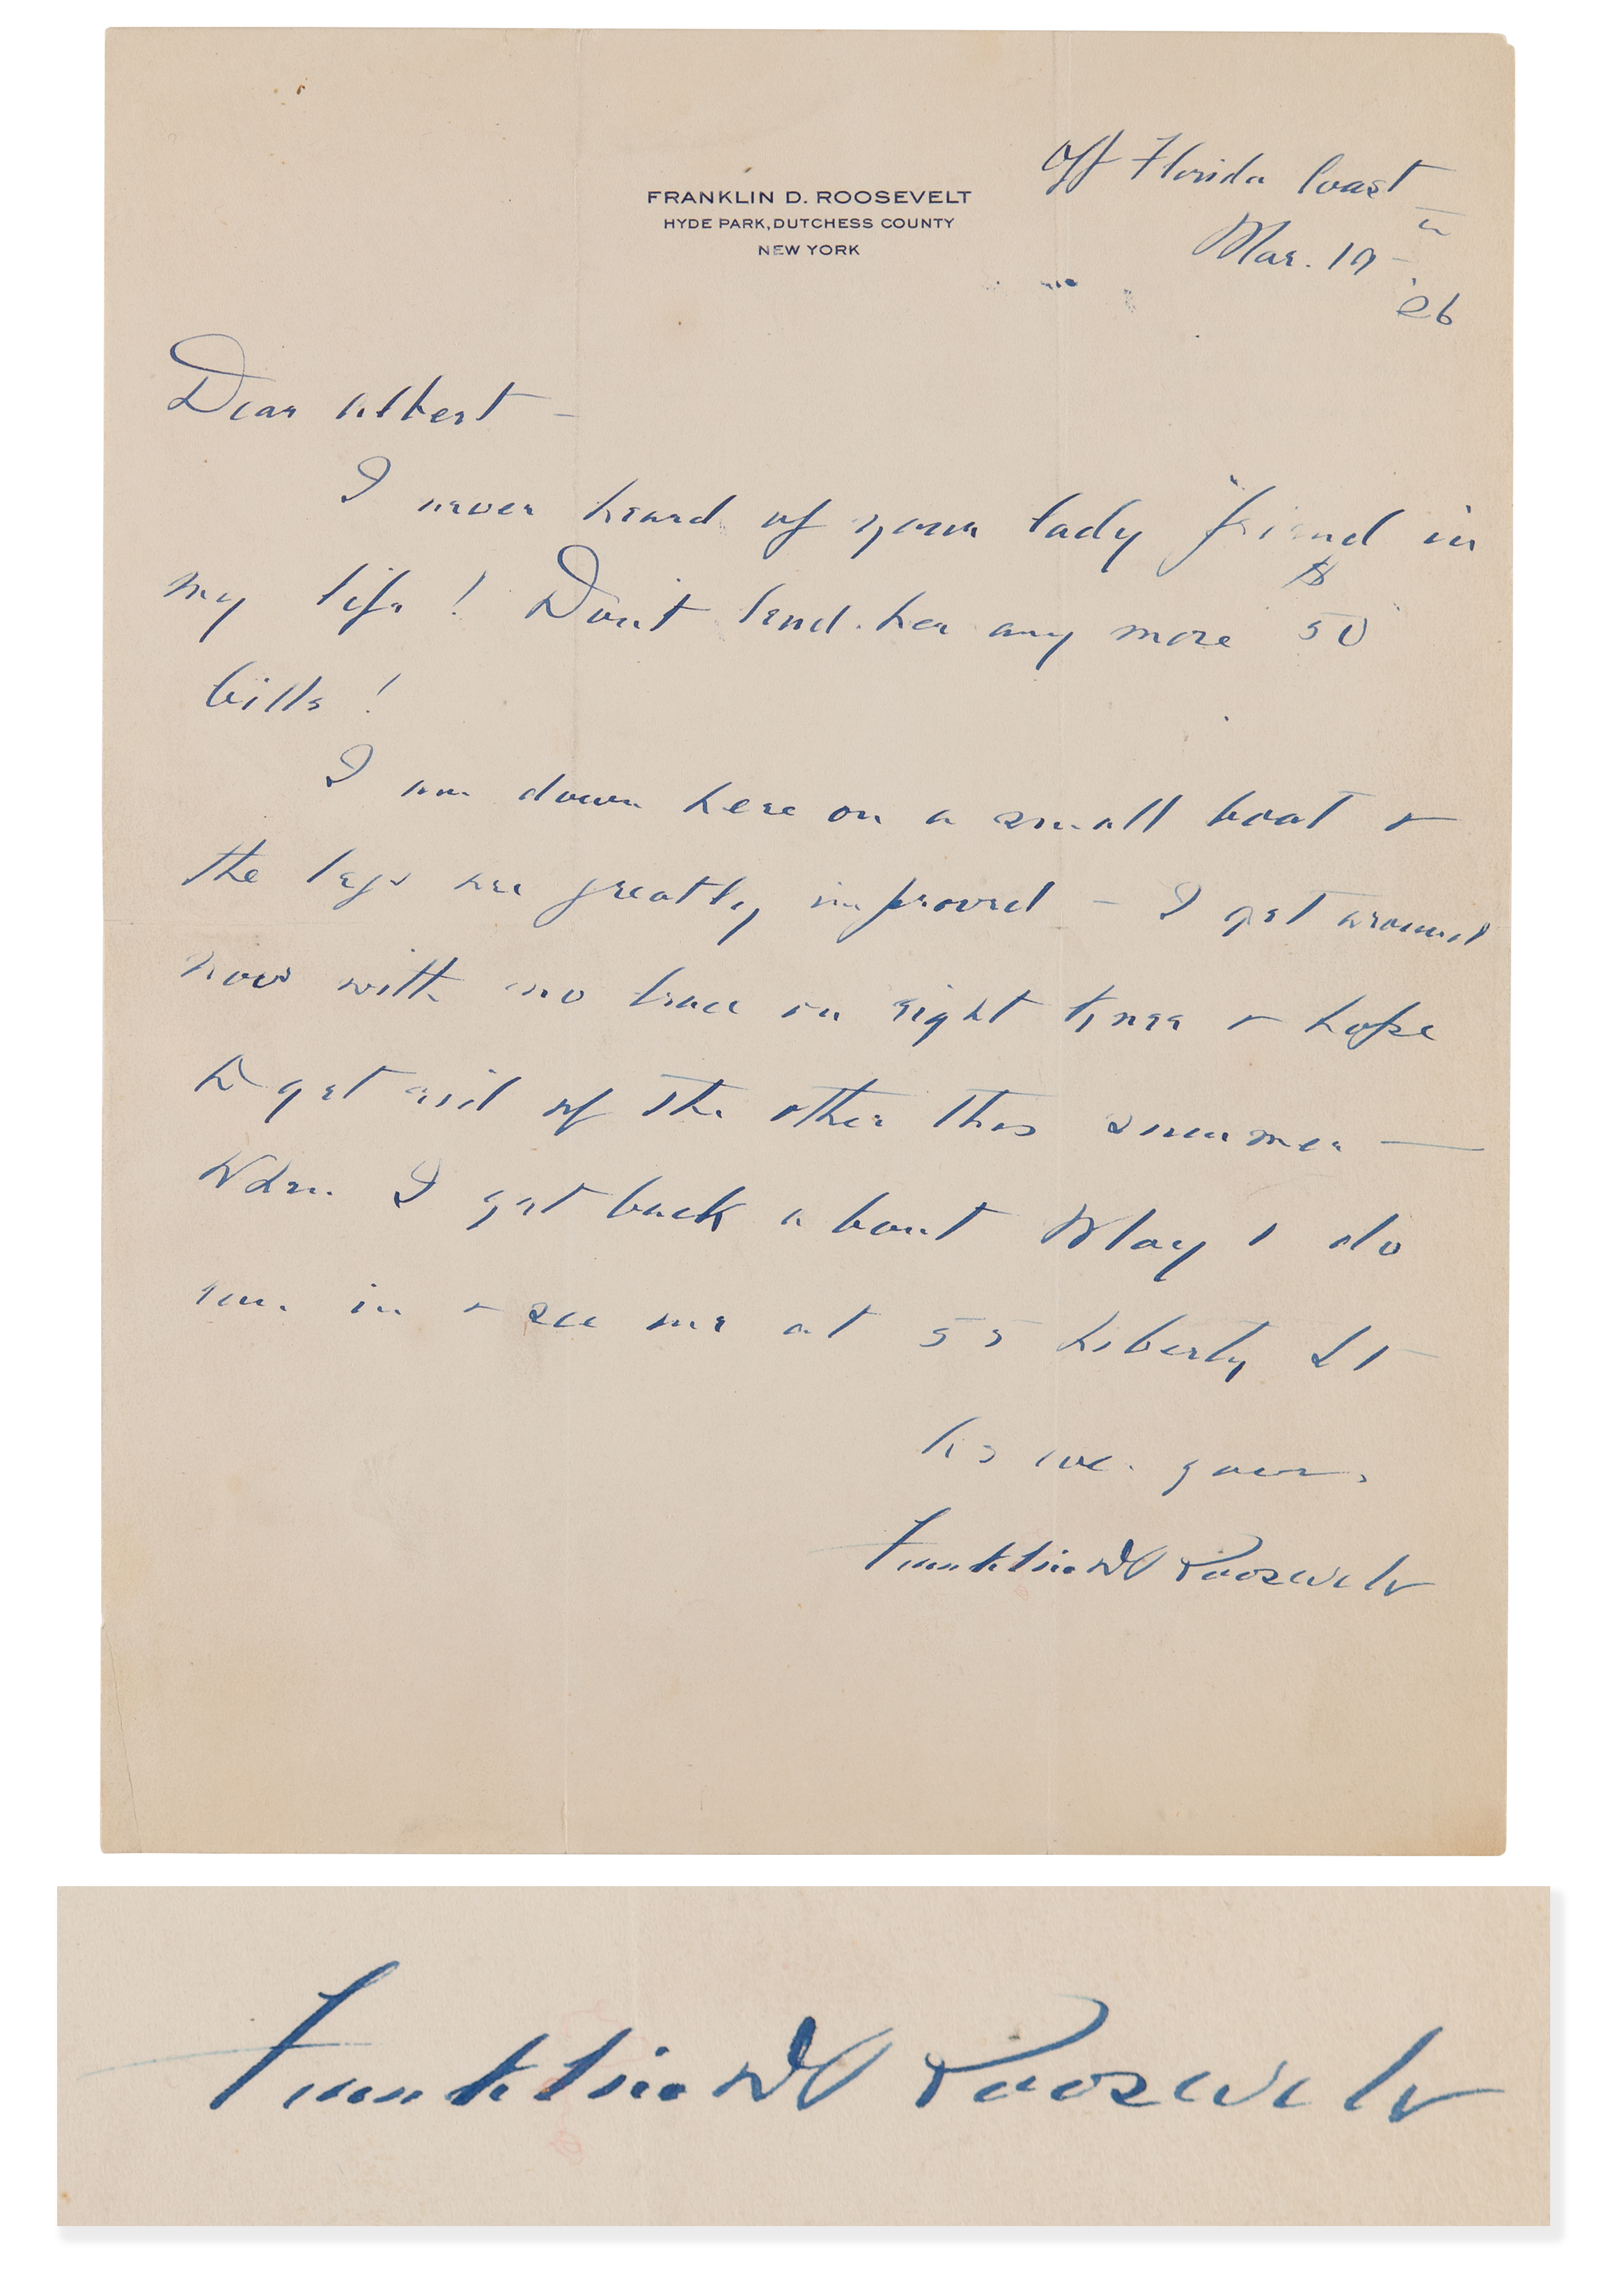 FRANKLIN D. ROOSEVELT
HYDE PARK, DUTCHESS COUNTY
NEW YORK
Off Florida Coast
Mar. 19
'26
Dear Albert –
I never heard of your lady "friend in
my life! Don't lend her any more $50
bills!
I am down here on a small boat &
the legs are greatly improved – I get around
now with no brace on right knee & hope
to get rid of the other this summer —
When I get back about May 1 do
run in & see me at 55 Liberty St
As ever yours
Franklin D Roosevelt
Franklin D Roosevelt